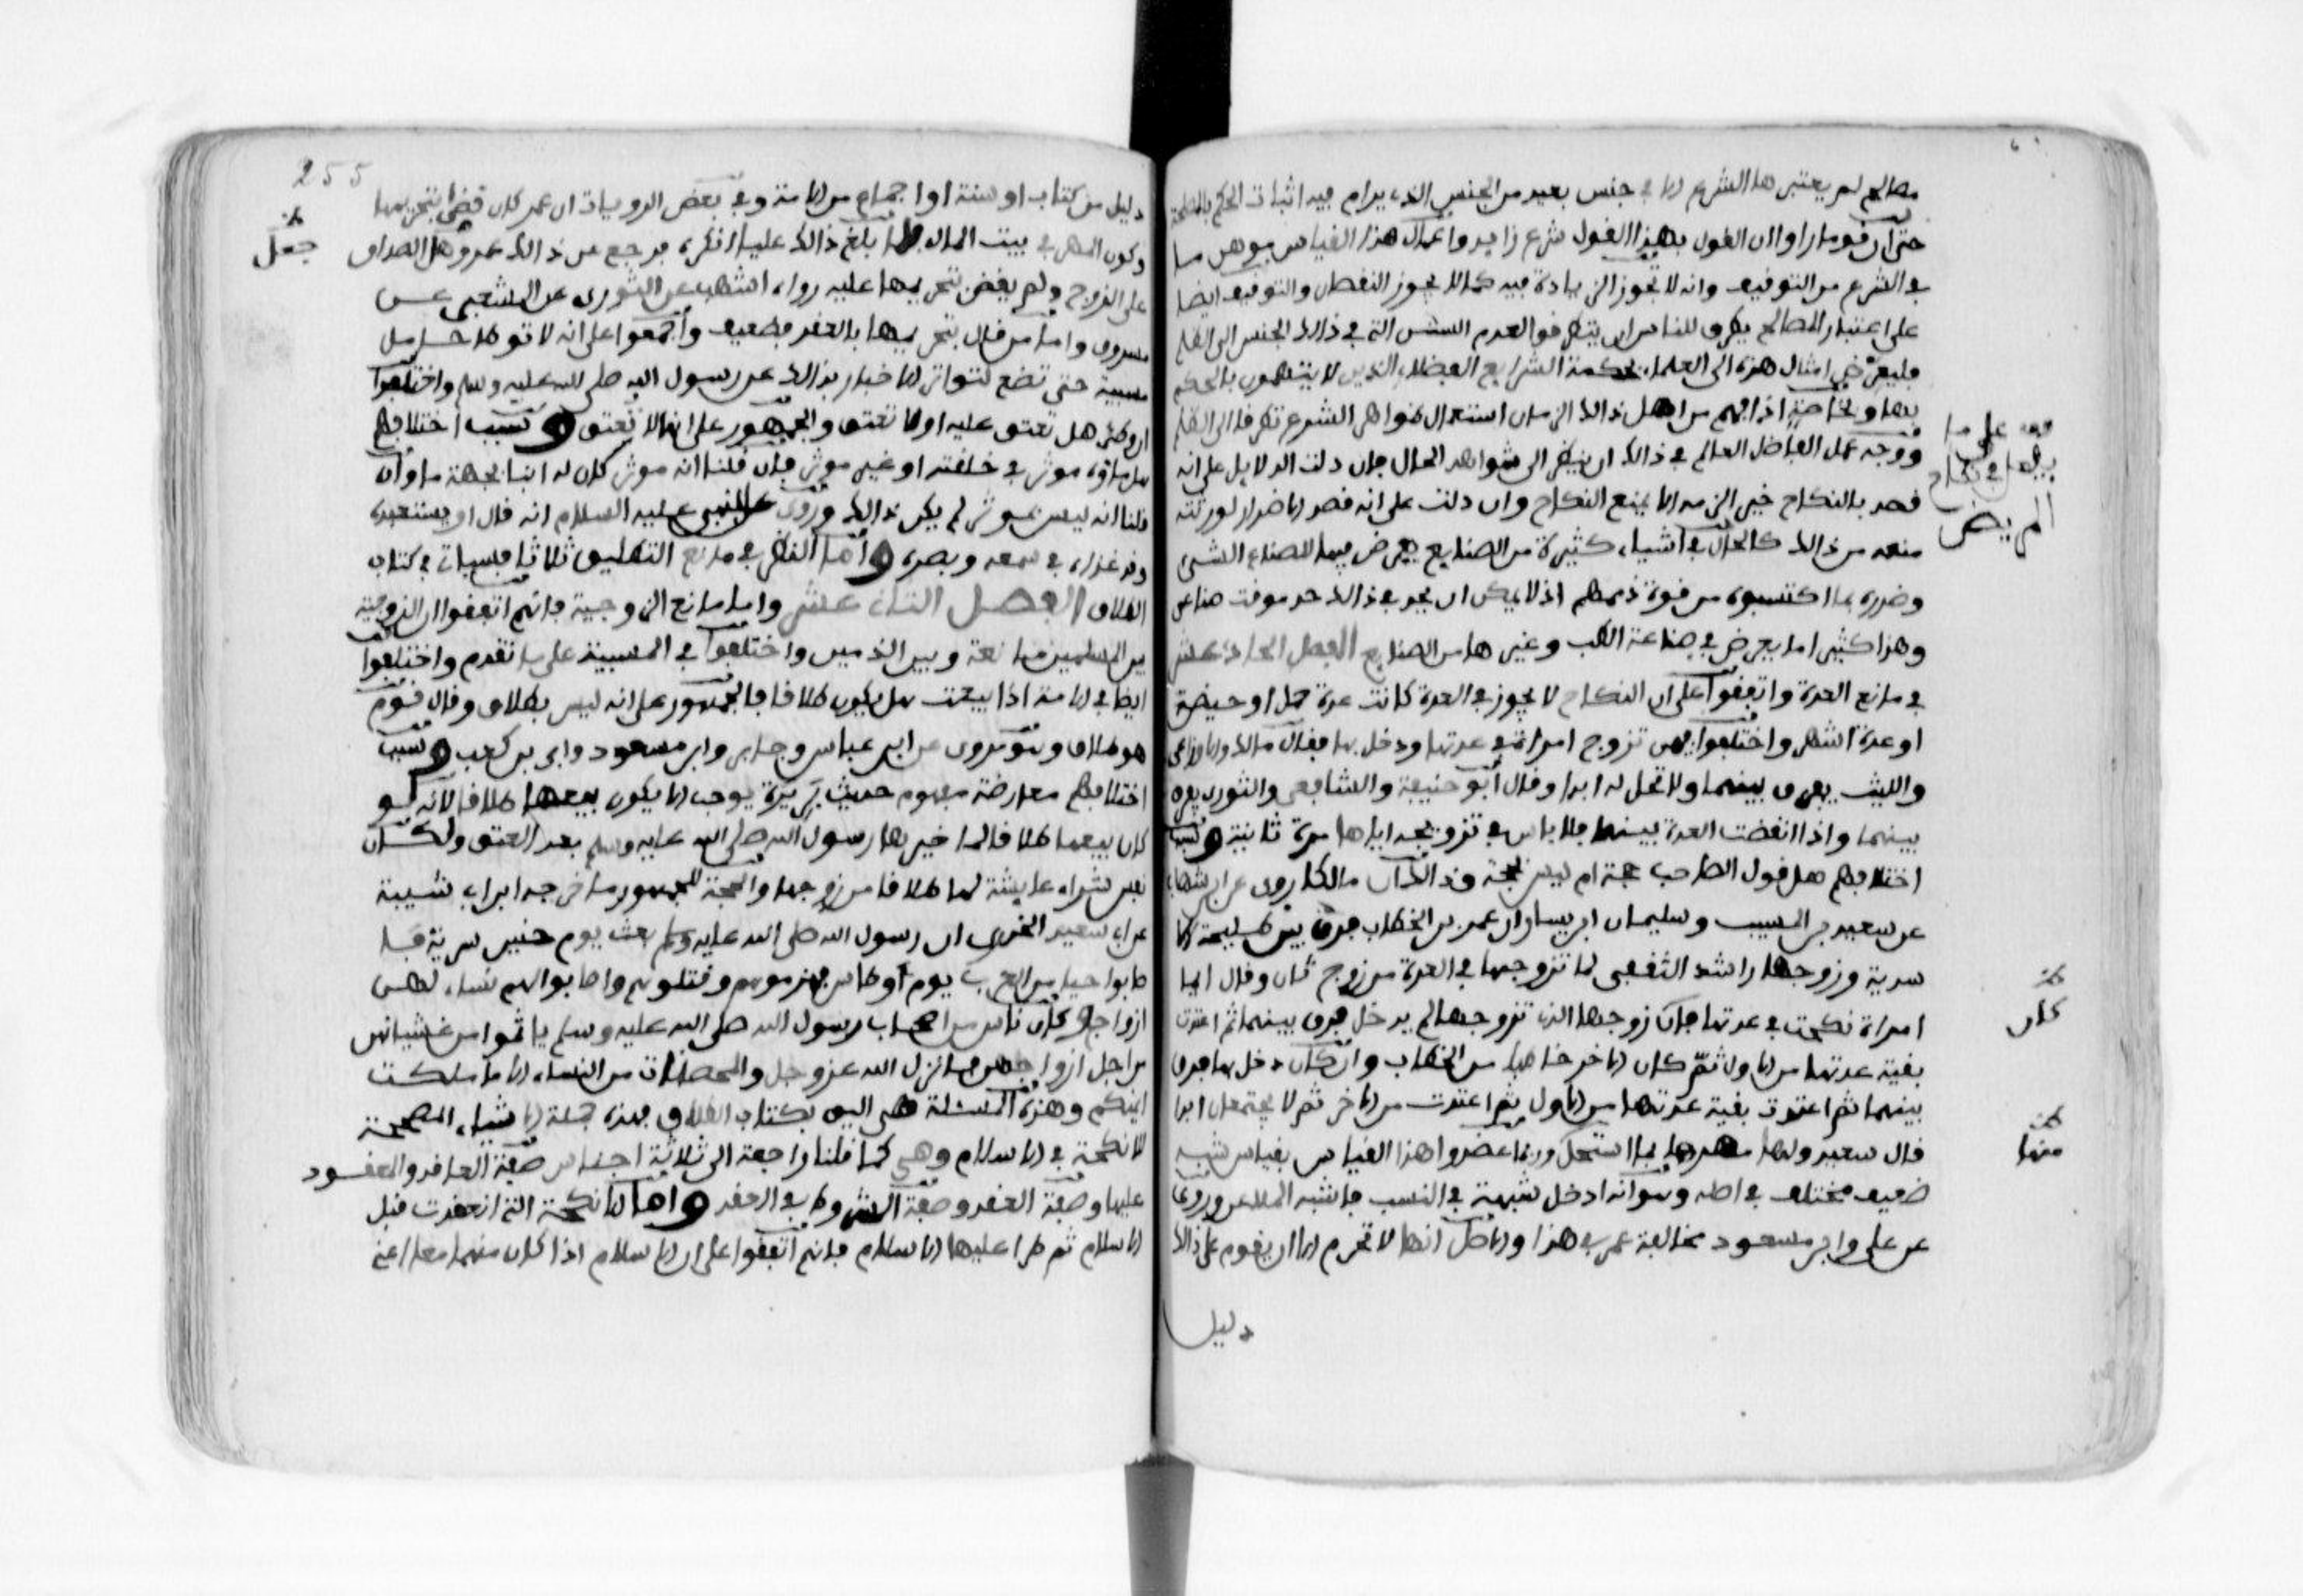 مصالح لم يعتبرها الشرع الا في جنس بعيد من الجنس الذي يرام فيه اثبات الحكم بالمصلحة
حتى ان قوما راوا ان القول بهذا القول شرع زايد واعمال هذا القياس يوهن ما
في الشرع من التوقيف وانه لا تجوز الزيادة فيه كما لا يجوز النقصان والتوقيف ايضا
على اعتبار المصالح يطرق للناس ان يتطرقوا لعدم السنن التي في ذلك الجنس الى الظلم
فليفوض امثال هذه الى العلماء بحكمة الشرايع الفضلاء الذين لا يتهمون بالحكم
بها وبخاصة اذا فهم من اهل ذلك الزمان استعمال ظواهر الشرع تطرقا الى الظلم
ووجه عمل الفاضل العالم في ذلك ان ينظر الى شواهد الحال فان دلت الدلايل على انه
قصد بالنكاح خيرا لزمه الا يمنع النكاح وان دلت على انه قصد الاضرار لورثته
منعه من ذلك كالحال في اشياء كثيرة من الصنايع يعرض فيها للصناع الشي
وضده بما اكتسبوه من قوة ذهنهم اذ لا يمكن ان يحد في ذلك حد موقت صناعي
وهذا كثيرا ما يعرض في صناعة الطب وغيرها من الصنايع الفصل الحادي عشر
في مانع العدة واتفقوا على ان النكاح لا يجوز في العدة كانت عدة حمل او حيضة
او عدة اشهر واختلفوا فيمن تزوج امراة في عدتها ودخل بها فقال مالك والاوزاعي
والليث يفرق بينهما ولا تحل له ابدا وقال ابو حنيفة والشافعي والثوري يفرق
بينهما واذا انقضت العدة بينهما فلا باس في تزويجه اياها مرة ثانية وسبب
اختلافهم هل قول الصاحب حجة ام ليس بحجة وذلك ان مالكا روى عن ابن شهاب
عن سعيد بن المسيب وسليمان ابن يسار ان عمر بن الخطاب فرق بين طليحة الا
سدية وزوجها راشد الثقفي لما تزوجها في العدة من زوج ثان وقال ايما
امراة نكحت في عدتها فان زوجها الذي تزوجها لم يدخل فرق بينهما ثم اعتدت
بقية عدتها من الاول ثم كان الاخر خاطبا من الخطاب وان كان دخل بها فرق
بينهما ثم اعتدت بقية عدتها من الاول ثم اعتدت من الاخر ثم لا يجتمعان ابدا
قال سعيد ولها مهرها بما استحل وربما عضدوا هذا القياس بقياس شبه
ضعيف مختلف في اصله وهو انه ادخل شبهة في النسب فاشبه الملاعن وروي
عن علي وابن مسعود مخالفة عمر في هذا والاصل انها لا تحرم الا ان يقوم على ذلك
دليل
قف على ما
يفعل في نكاح
المريض
كان
منها
255
دليل من كتاب او سنة او اجماع من الامة وفي بعض الروايات ان عمر كان قضى بتحريمها
وكون المهر في بيت المال فلما بلغ ذلك عليا انكره فرجع عن ذلك عمر وهل الصداق
جعل
على الزوج ولم يقض بتحريمها عليه رواه اشهب عن الثوري عن الشعبي عن
مسروق واما من قال بتحريمها بالعقد فضعيف واجمعوا على انه لا توطا حامل
مسبية حتى تضع لتواتر الاخبار بذلك عن رسول الله صلى الله عليه وسلم واختلفوا
ان وطي هل تعتق عليه او لا تعتق والجمهور على انها لا تعتق وسبب اختلافهم
هل ماؤه موثر في خلقته او غير موثر فان قلنا انه موثر كان له ابنا بجهة ما وان
قلنا انه ليس بموثر لم يكن ذلك وروي عن النبي عليه السلام انه قال او يستعبده
وقد غذاه في سمعه وبصره واما النظر في مانع التطليق ثلاثا فسياتي في كتاب
الطلاق الفصل الثاني عشر واما مانع الزوجية فانهم اتفقوا ان الزوجية
بين المسلمين مانعة وبين الذميين واختلفوا في المسبية على ما تقدم واختلفوا
ايضا في الامة اذا بيعت هل يكون طلاقا فالجمهور على انه ليس بطلاق وقال قوم
هو طلاق وهو مروي عن ابن عباس وجابر وابن مسعود وابي بن كعب وسبب
اختلافهم معارضة مفهوم حديث بريرة يوجب الا يكون بيعها طلاقا لانه لو
كان بيعها طلاقا لما خيرها رسول الله صلى الله عليه وسلم بعد العتق ولكان
نفس شراء عايشة لها طلاقا من زوجها والحجة للجمهور ما خرجه ابن ابي شيبة
عن ابي سعيد الخدري ان رسول الله صلى الله عليه وسلم بعث يوم حنين سرية فا
صابوا حيا من العرب يوم اوطاس فهزموهم وقتلوهم واصابوا لهم نساء لهن
ازواج وكان ناس من اصحاب رسول الله صلى الله عليه وسلم ياثموا من غشيانهن
من اجل ازواجهن فانزل الله عز وجل والمحصنات من النساء الا ما ملكت
ايمنكم وهذه المسئلة هي اليق بكتاب الطلاق فهذه جملة الاشياء المصححة
لانكحة في الاسلام وهي كما قلنا راجعة الى ثلاثة اجناس صفة العاقد والمعقود
عليها وصفة العقد وصفة الشروط في العقد واما الانكحة التي انعقدت قبل
الاسلام ثم طرا عليها الاسلام فانهم اتفقوا على ان الاسلام اذا كان منهما معا اعني